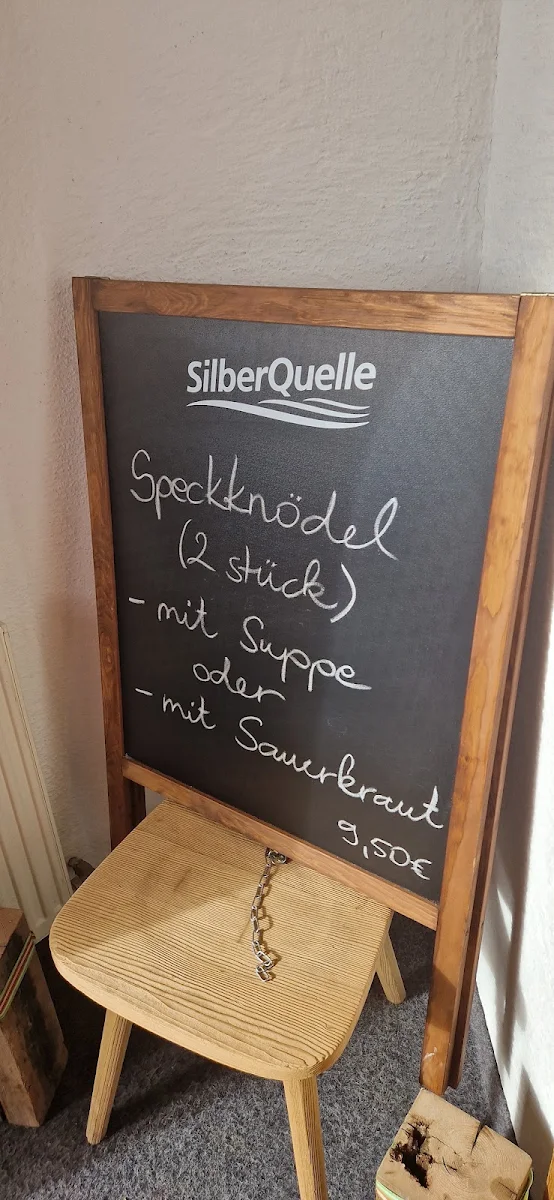 SilberQuelle
Speckknödel
(2 stück)
- mit Suppe
oder
- mit Sauerkraut
9,50€